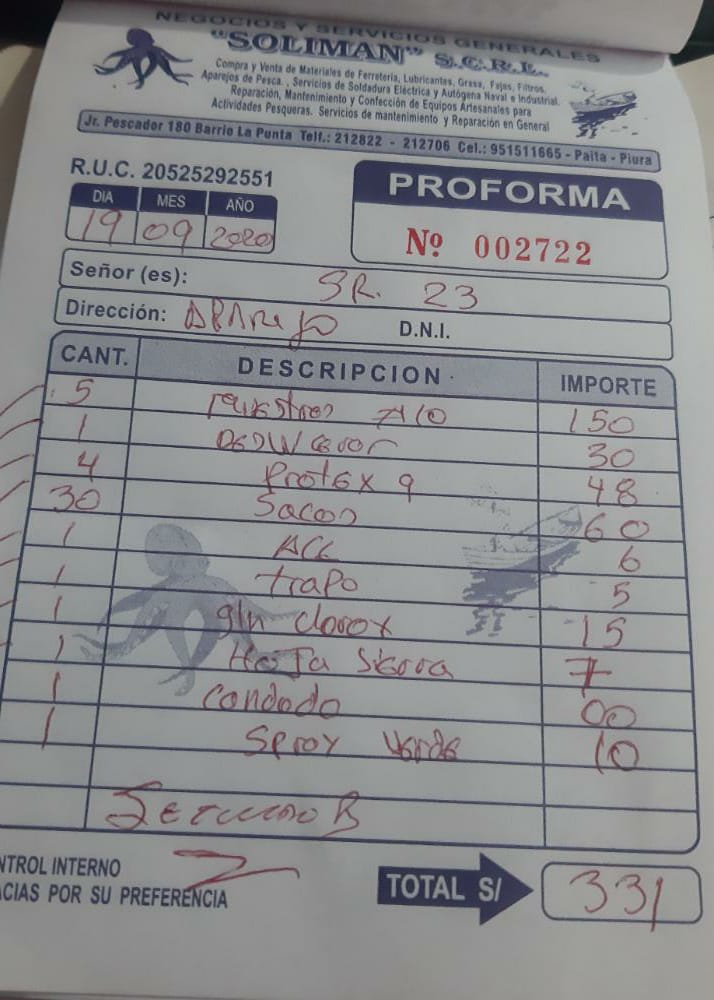 NEGOCIOS Y SERVICIOS GENERALES
"SOLIMAN" S.C.R.L.
Compra y Venta de Materiales de Ferretería, Lubricantes, Grasa, Fajas, Filtros,
Aparejos de Pesca., Servicios de Soldadura Eléctrica y Autógena Naval e Industrial.
Reparación, Mantenimiento y Confección de Equipos Artesanales para
Actividades Pesqueras. Servicios de mantenimiento y Reparación en General
Jr. Pescador 180 Barrio La Punta Telf.: 212822 - 212706 Cel.: 951511665 - Paita - Piura
R.U.C. 20525292551
PROFORMA
DIA MES AÑO
19 09 2020
Nº 002722
Señor (es): SR. 23
Dirección: APAREJO D.N.I.
CANT. DESCRIPCION IMPORTE
5 150
1 30
4 Protex 9 48
30 Sacos 60
1 6
1 trapo 5
1 gln clorox 15
1 Hoja Sierra 7
1 Candado 00
1 Spray Verde 10
NTROL INTERNO
CIAS POR SU PREFERENCIA
TOTAL S/ 331